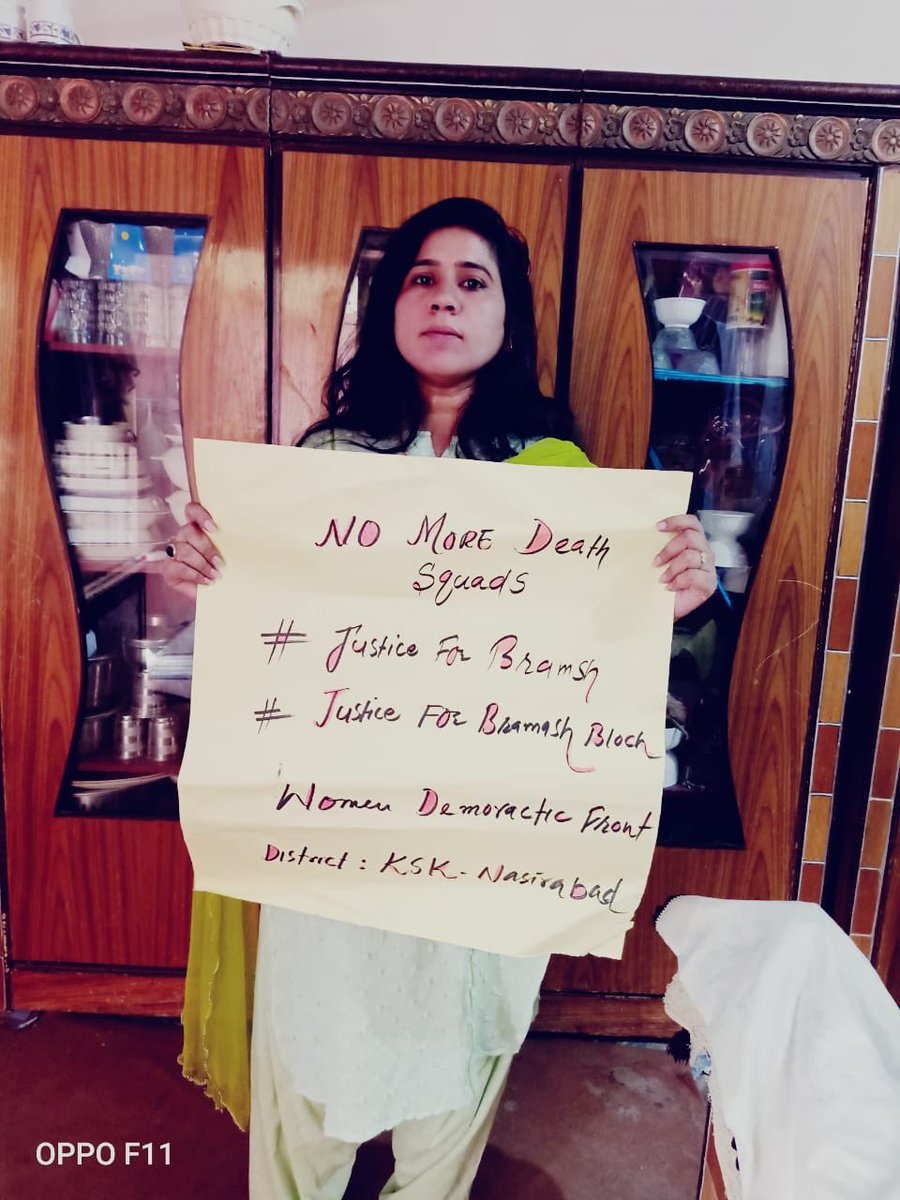 NO MORE Death
Squads
# Justice For Bramsh
# Justice For Bramash Bloch
Women Demoractic Front
District : KSK - Nasirabad
OPPO F11